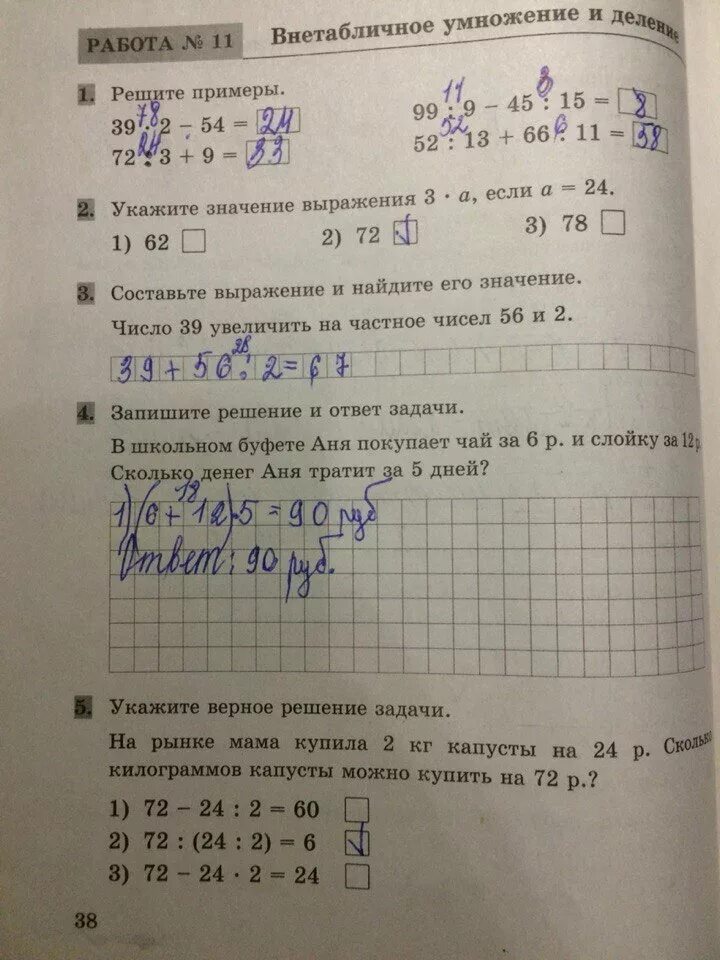 РАБОТА № 11
Внетабличное умножение и деление
1. Решите примеры.
78
39 · 2 − 54 = 24
11 3
99 : 9 − 45 : 15 = 8
24
72 : 3 + 9 = 33
52 6
52 : 13 + 66 : 11 = 58
2. Укажите значение выражения 3 · a, если a = 24.
1) 62
2) 72
3) 78
3. Составьте выражение и найдите его значение.
Число 39 увеличить на частное чисел 56 и 2.
28
39 + 56 : 2 = 67
4. Запишите решение и ответ задачи.
В школьном буфете Аня покупает чай за 6 р. и слойку за 12 р.
Сколько денег Аня тратит за 5 дней?
18
1) (6 + 12) · 5 = 90 руб
Ответ: 90 руб.
5. Укажите верное решение задачи.
На рынке мама купила 2 кг капусты на 24 р. Сколько
килограммов капусты можно купить на 72 р.?
1) 72 − 24 : 2 = 60
2) 72 : (24 : 2) = 6
3) 72 − 24 · 2 = 24
38